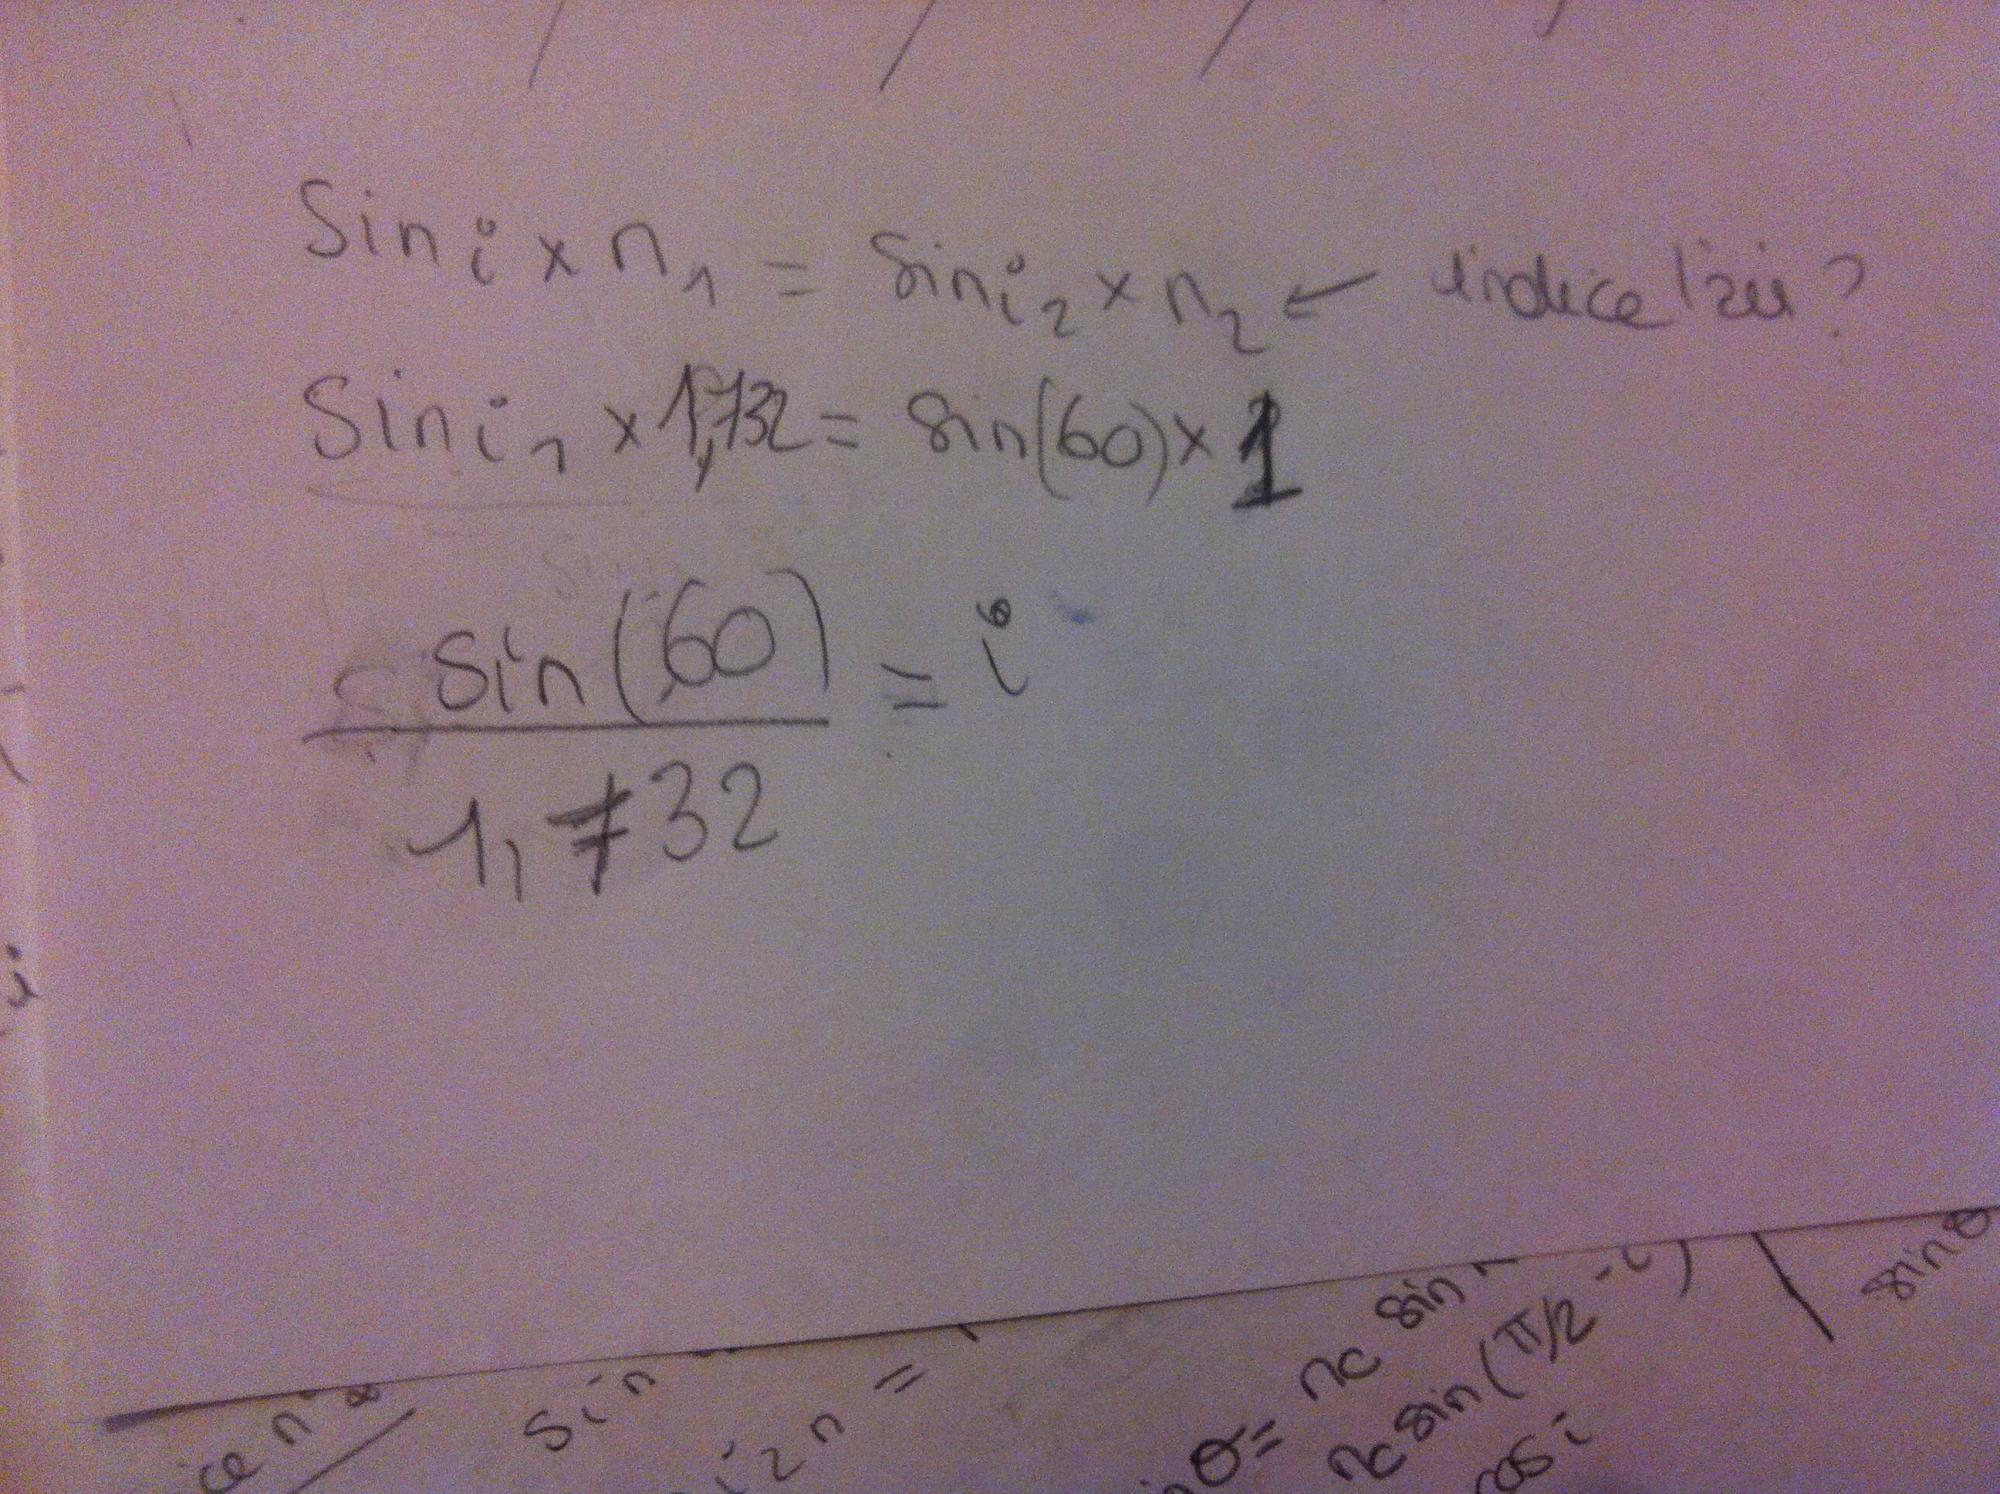 sin i x n₁ = sin i₂ x n₂ ← indice l'air ?
sin i₁ x 1,732 = sin(60) x 1
sin(60)
= i
1,732
sin
i₂n =
θ= nc sin
nc sin(π/2 -i)
cos i
sin θ